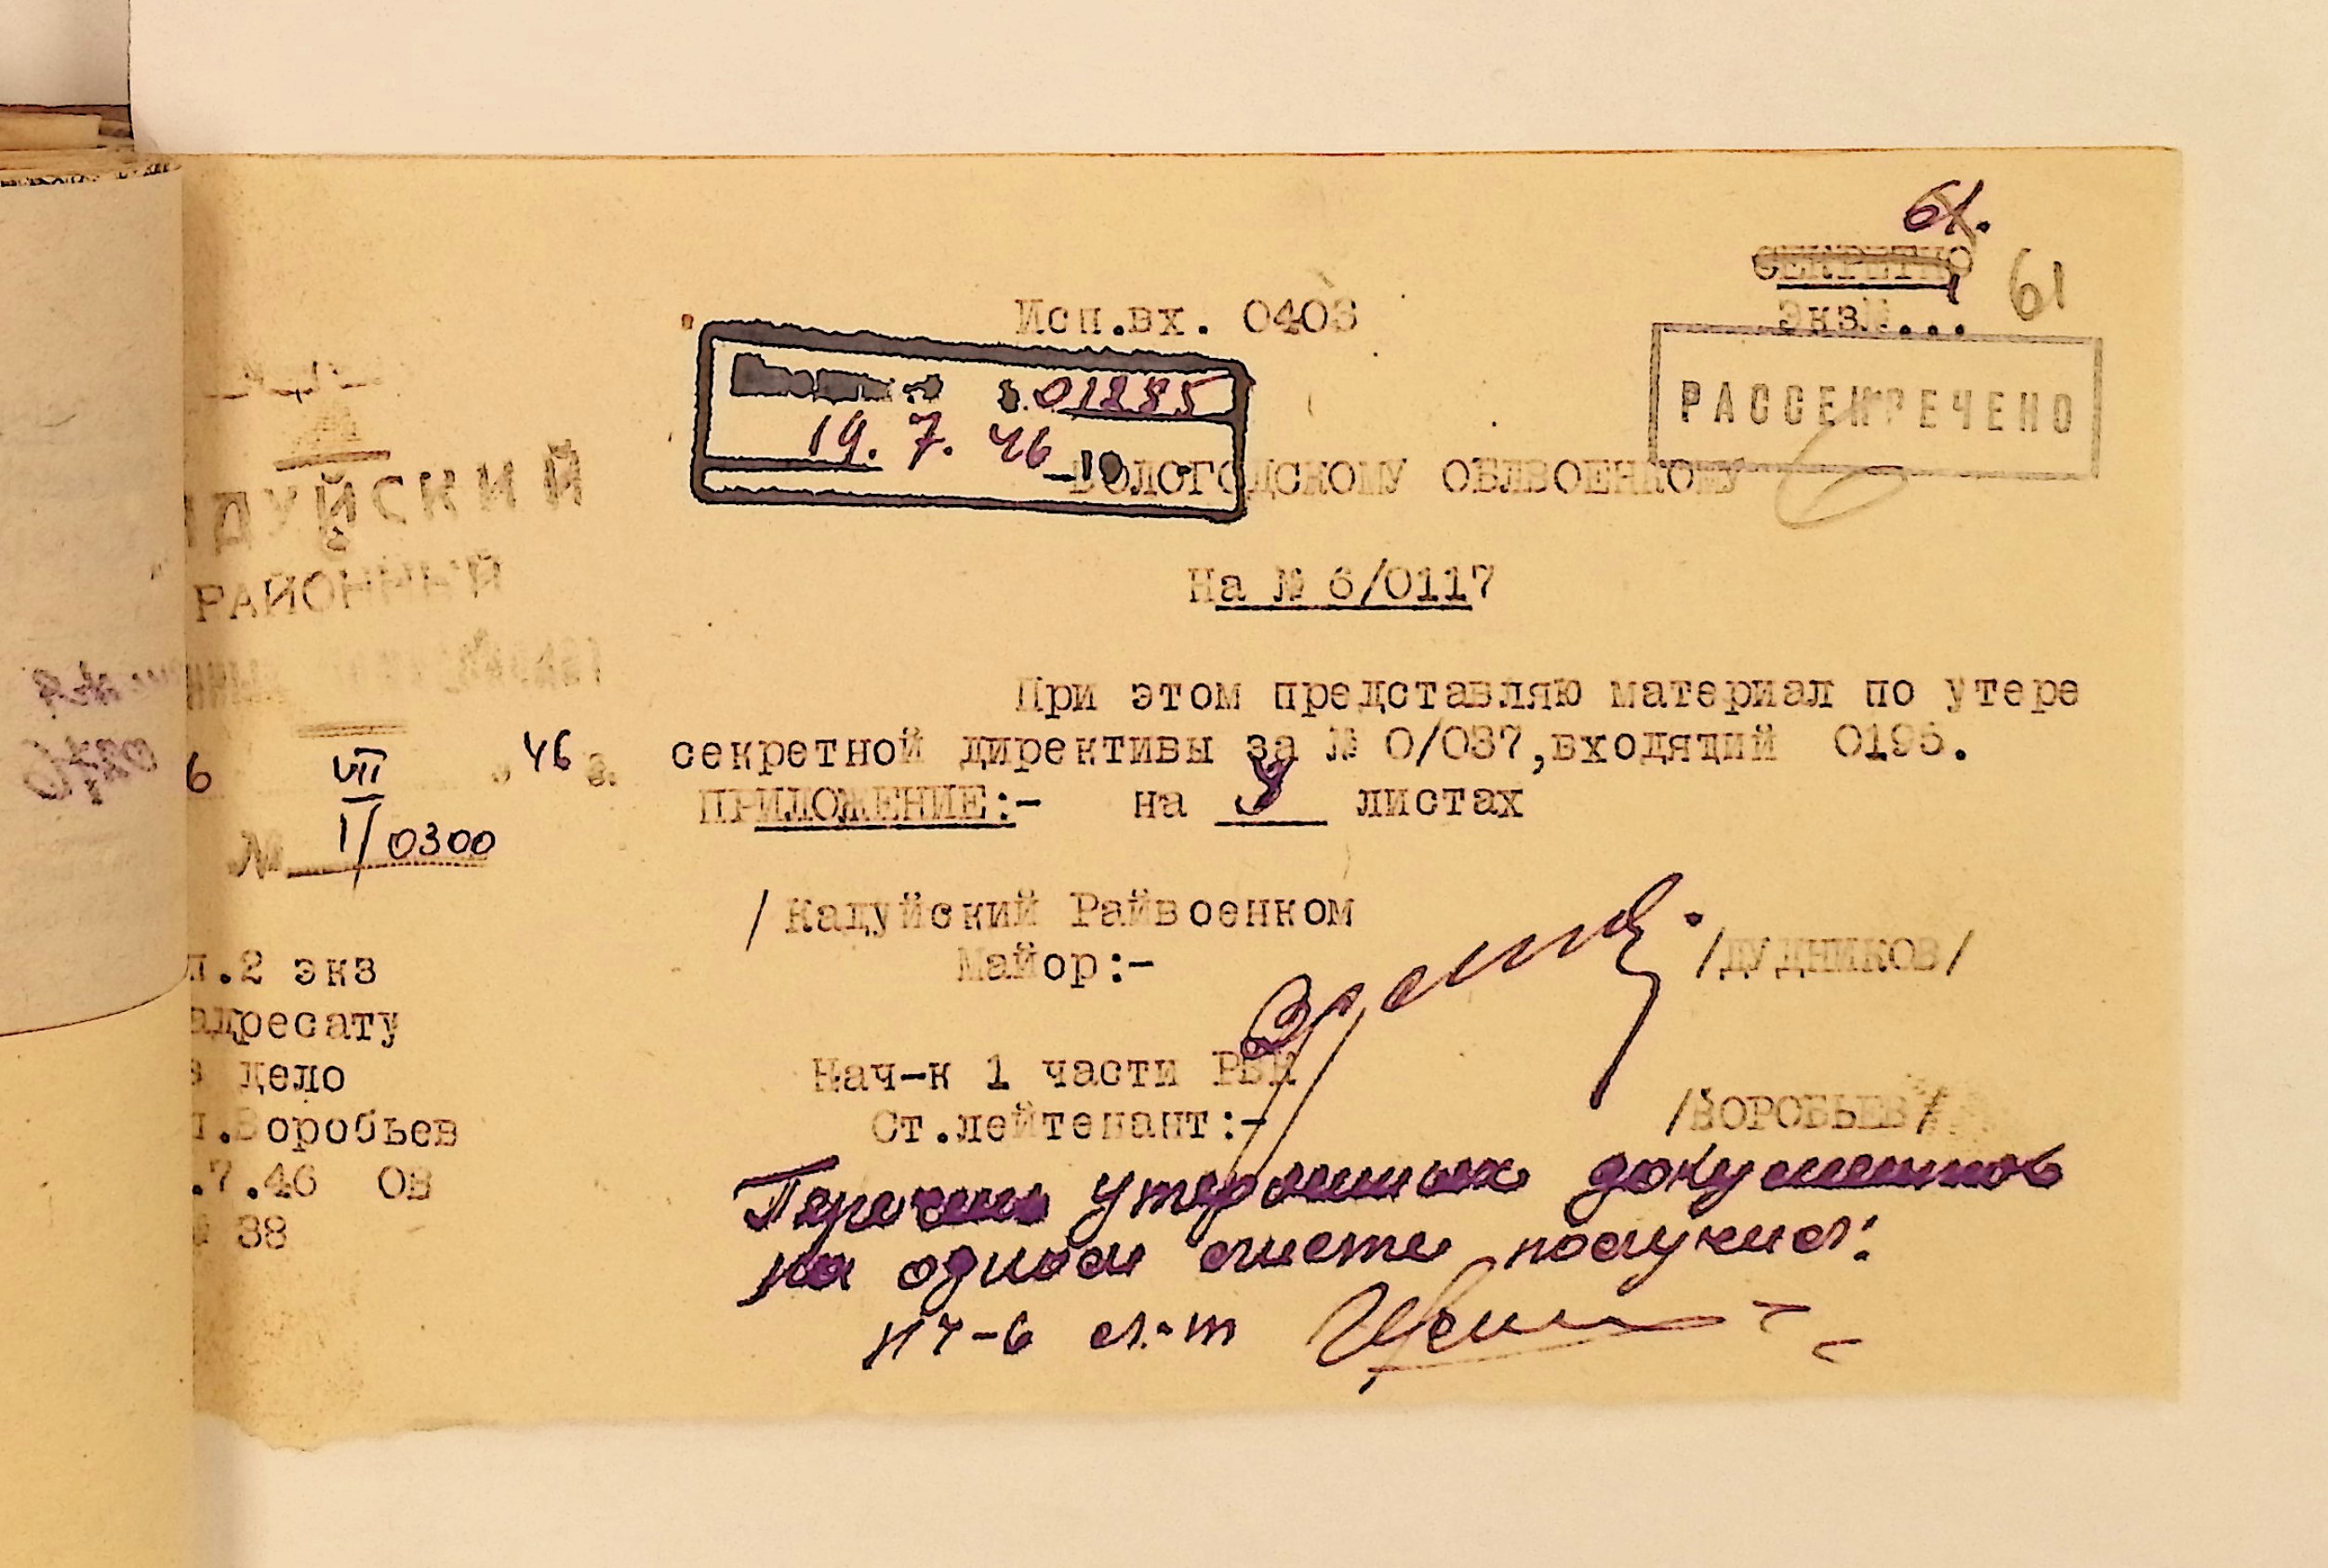 61.
СЕКРЕТНО
61
Экз№...
Исп.вх. 0403
РАССЕКРЕЧЕНО
01285
19. 7. 46
ВОЛОГОДСКОМУ ОБЛВОЕНКОМУ
ДУЙСКИЙ
РАЙОННЫЙ
6 VII „ 46 г.
№ I/0300
На № 6/0117
При этом представляю материал по утере
секретной директивы за № 0/037,входящий 0195.
ПРИЛОЖЕНИЕ:- на листах
/Кадуйский Райвоенком
Майор:-
/ДУДНИКОВ/
Нач-к 1 части РВК
Ст.лейтенант:-
/ВОРОБЬЕВ/
п.2 экз
адресату
в дело
п.Воробьев
.7.46 ОВ
№ 38
Перечень утерянных документов
на одном листе получил:
НЧ-6 л-т